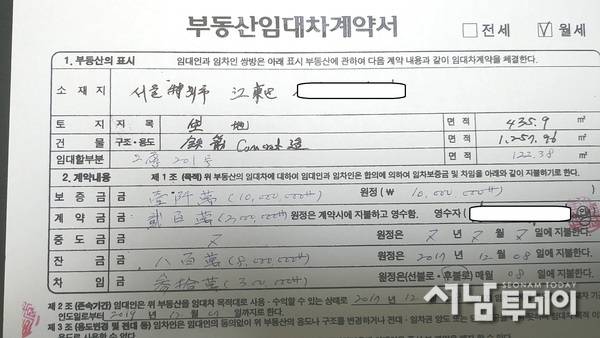 부동산임대차계약서 □전세 ☑월세
1. 부동산의 표시 임대인과 임차인 쌍방은 아래 표시 부동산에 관하여 다음 계약 내용과 같이 임대차계약을 체결한다.
소재지 서울 特別市 江東區
토지 지목 垈地 면적 435.9 ㎡
건물 구조·용도 鉄筋 Concret 造 면적 1,257.96 ㎡
임대할부분 2層 201号 면적 122.38 ㎡
2. 계약내용 제 1 조 (목적) 위 부동산의 임대차에 대하여 임대인과 임차인은 합의에 의하여 임차보증금 및 차임을 아래와 같이 지불하기로 한다.
보증금 금 壹阡萬 (10,000,000 원정 (₩ 10,000,000
계약금 금 貳百萬 (2,000,000 원정은 계약시에 지불하고 영수함. 영수자 (
중도금 금 원정은 년 월 일에 지불한다.
잔금 금 八百萬 (8,000,000 원정은 2017 년 12 월 08 일에 지불한다.
차임 금 參拾萬 (300,000 원정은 (선불로·후불로) 매월 08 일에 지불한다.
제 2 조 (존속기간) 임대인은 위 부동산을 임대차 목적대로 사용·수익할 수 있는 상태로 2017 년 12
인도일로부터 2019 년 12 월 일까지로 한다.
제 3 조 (용도변경 및 전대 등) 임차인은 임대인의 동의없이 위 부동산의 용도나 구조를 변경하거나 전대·임차권 양도 또는
용도로 사용할 수 없다.
SEONAM TODAY
서남투데이